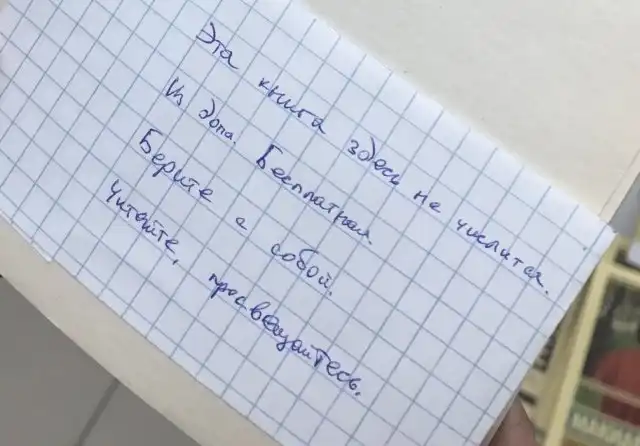 Эта книга здесь не числится.
Из дома. Бесплатная.
Берите с собой.
Читайте, просвещайтесь.